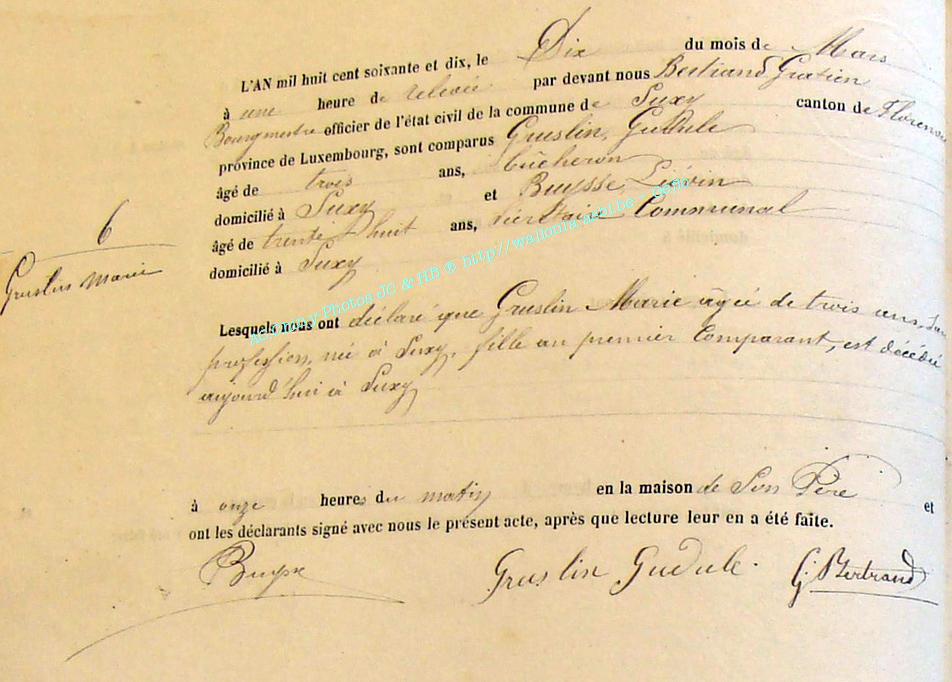 L'AN mil huit cent soixante et dix, le Dix du mois de Mars
à une heure de relevée par devant nous Bertrand Gratien
Bourgmestre officier de l'état civil de la commune de Suxy canton de Florenville
province de Luxembourg, sont comparus Gruslin, Gudule
âgé de trois ans, bûcheron
domicilié à Suxy et Buysse, Liévin
âgé de trente huit ans, Secrétaire Communal
domicilié à Suxy
6
Gruslin Marie
Lesquels nous ont déclaré que Gruslin Marie âgée de trois ans, San
profession, née à Suxy, fille au premier Comparant, est décédée
aujourd'hui à Suxy
à onze heures du matin en la maison de Son Père et
ont les déclarants signé avec nous le présent acte, après que lecture leur en a été faite.
Buysse Gruslin Gudule. G. Bertrand
Photos JC & HB ® http://wallonia.